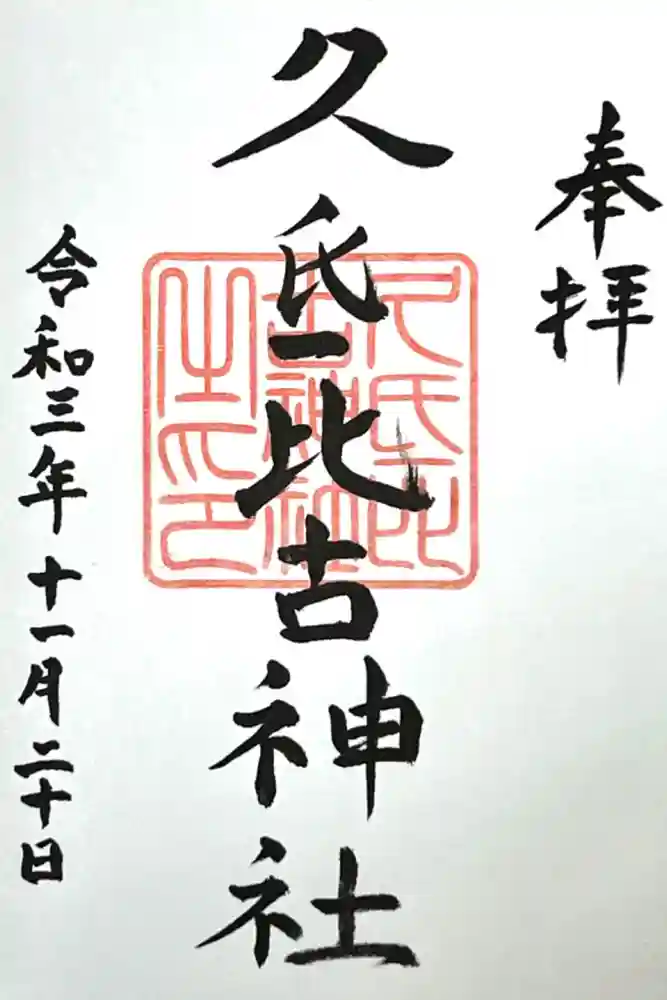 奉拝
久氐比古神社
令和三年十一月二十日
久氐比
古神社
之印